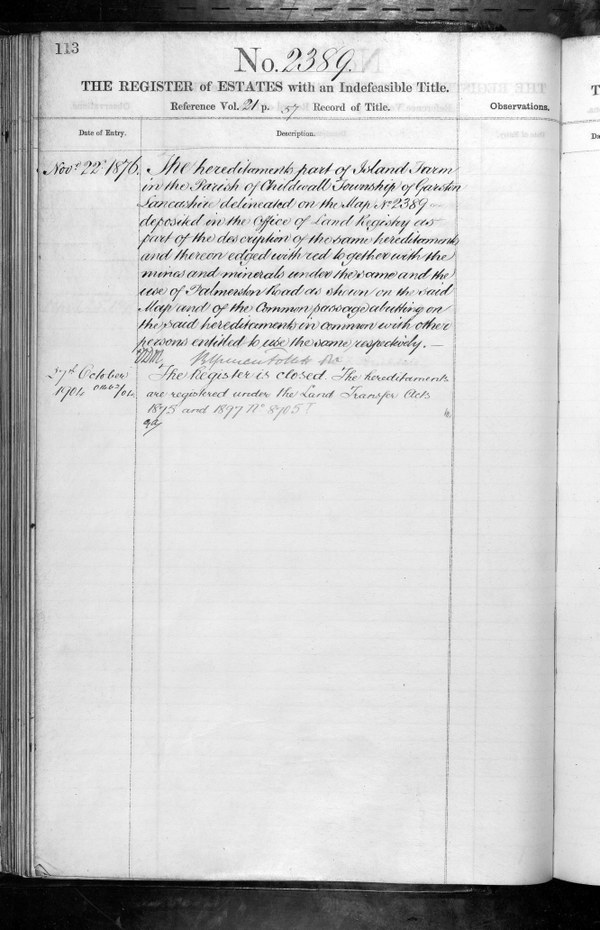 113
No. 2389.
THE REGISTER of ESTATES with an Indefeasible Title.
Reference Vol. 21 p. 57 Record of Title.
Observations.
Date of Entry.
Description.
Novr 22d 1876. The hereditaments part of Island Farm
in the Parish of Childwall Township of Garston
Lancashire delineated on the Map No 2389
deposited in the Office of Land Registry as
part of the description of the same hereditaments
and thereon edged with red together with the
mines and minerals under the same and the
use of Palmerston Road as shewn on the said
Map and of the Common passage abutting on
the said hereditaments in common with other
persons entitled to use the same respectively. —
27th October
1904
The Register is closed. The hereditaments
are registered under the Land Transfer Acts
1875 and 1897 No 8705